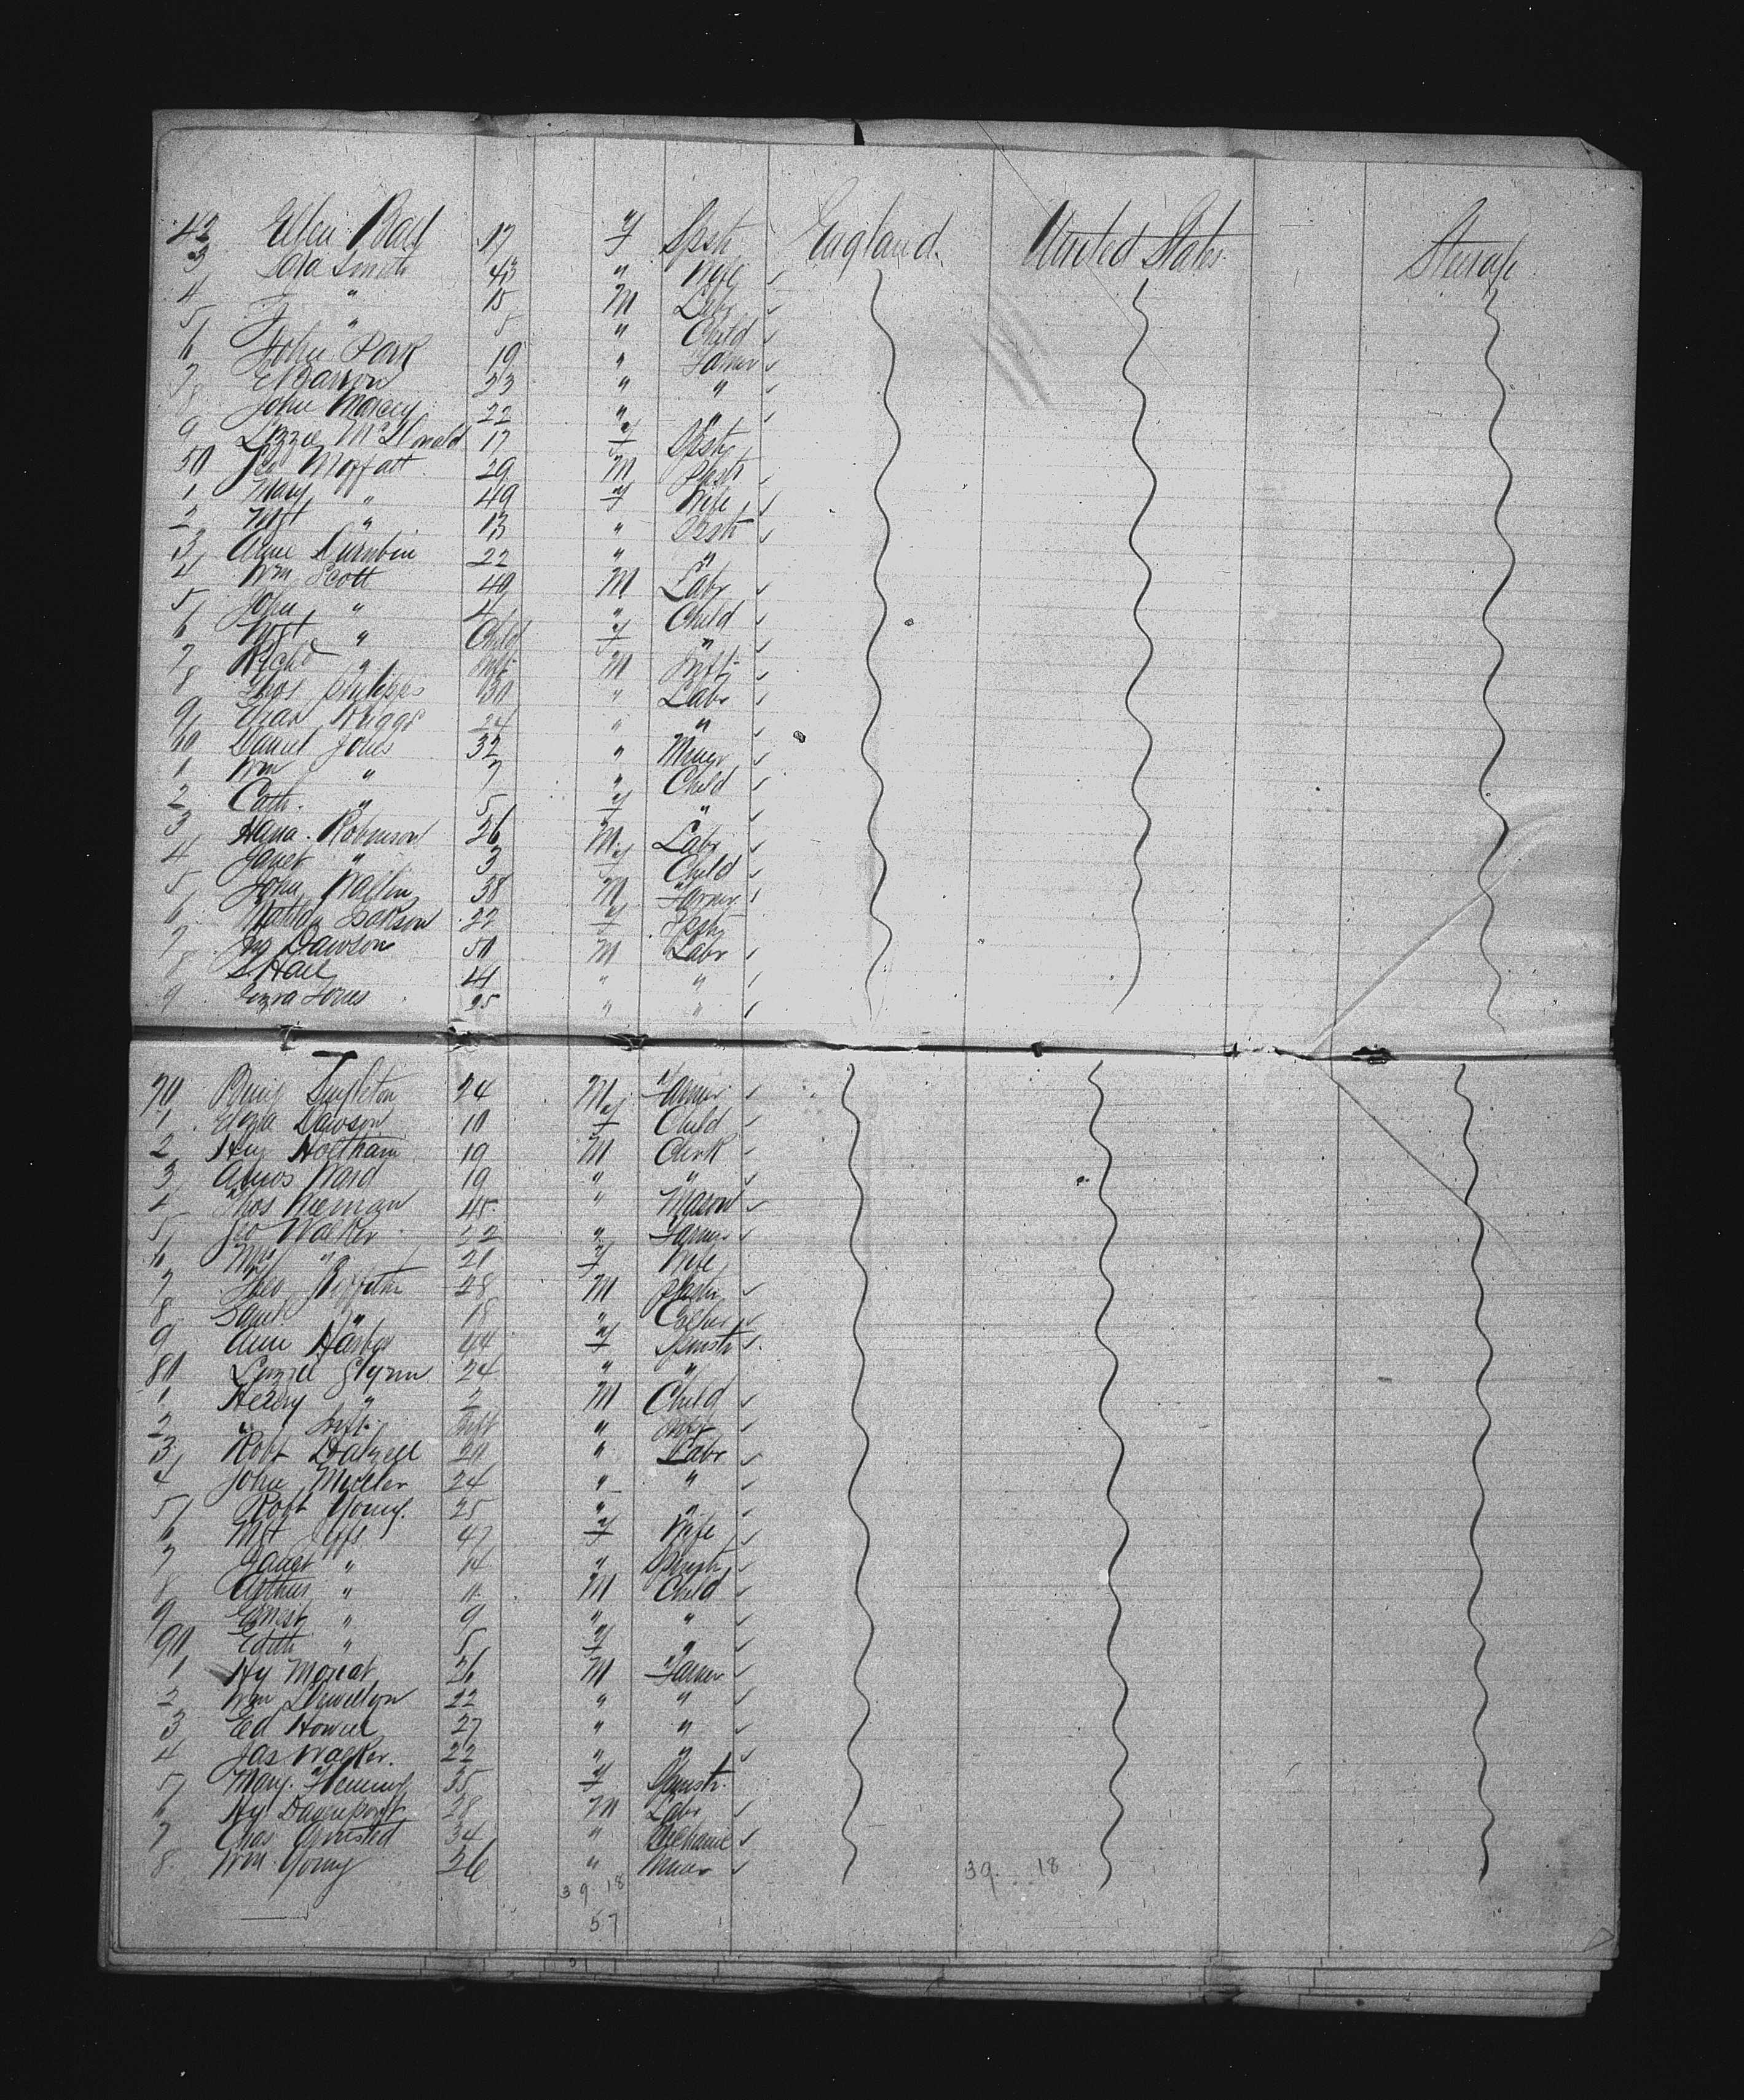 42 Ellen Ball 17 f Spstr England. United States Steerage
3 Sara Smith 43 " Wife
4 J " 15 M Labr
5 J " 5 " Child
6 John Park 19 " Farmer
7 E Barron 23 " "
8 John Morcey 22 " "
9 Lizzie McDonald 17 f Spstr
50 Geo Moffatt 29 M
1 Mary " 49 f Wife
2 Mgt " 13 " Spstr
3 Anne Durnbin 22 " "
4 Wm Scott 40 M Labr
5 John " 4 " Child
6 Mgt " Child f "
7 Richd " Inft. M Inft.
8 Thos Philipps 30 " Labr
9 Chas Briggs 24 " "
60 Daniel Jones 32 " Miner
1 Wm " 7 " Child
2 Cath. " 5 f "
3 Hana. Robinson 26 M Labr
4 Janet " 3 f Child
5 John Wallin 38 M Farmer
6 Matilda Isakson 27 f Spstr
7 Dawson 50 M Labr
8 S. Hall 41 " "
9 Ezra Jones 25 " "
70 Benj Singleton 24 M Farmer
1 Eliza Dawson 10 f Child
2 Hy Holtham 19 M Clerk
3 Amos Ward 19 " "
4 Thos Neeman 45 " Mason
5 Geo Walker 22 " Farmer
6 Mgt " 21 f Wife
7 Theo 28 M
8 Saml " 18 "
9 Ann 44 f Spinstr
80 Lizzie Glynn 24 " "
1 Henry " 2 M Child
2 " Inft. Inft " Inft
3 Robt Dalzell 20 " Labr
4 John Mueller 24 " "
5 Robt Young. 25 " "
6 Mgt Jeffs 47 f Wife
7 Janet " 14 " Spinstr
8 Arthur " 11 M Child
9 Ernest " 9 " "
90 Edith " 5 f "
1 Hy Morcat 26 M Farmer
2 Wm Llewellyn 22 " "
3 Ed Howell 27 " "
4 Jas Walker. 22 " "
5 Mary. Fleming 35 f Spinstr.
6 Hy Davenport 28 M Labr
7 Chas Armsted 34 " Mechanic
8 Wm. Young 26 " Miner 39 18
39 18
57